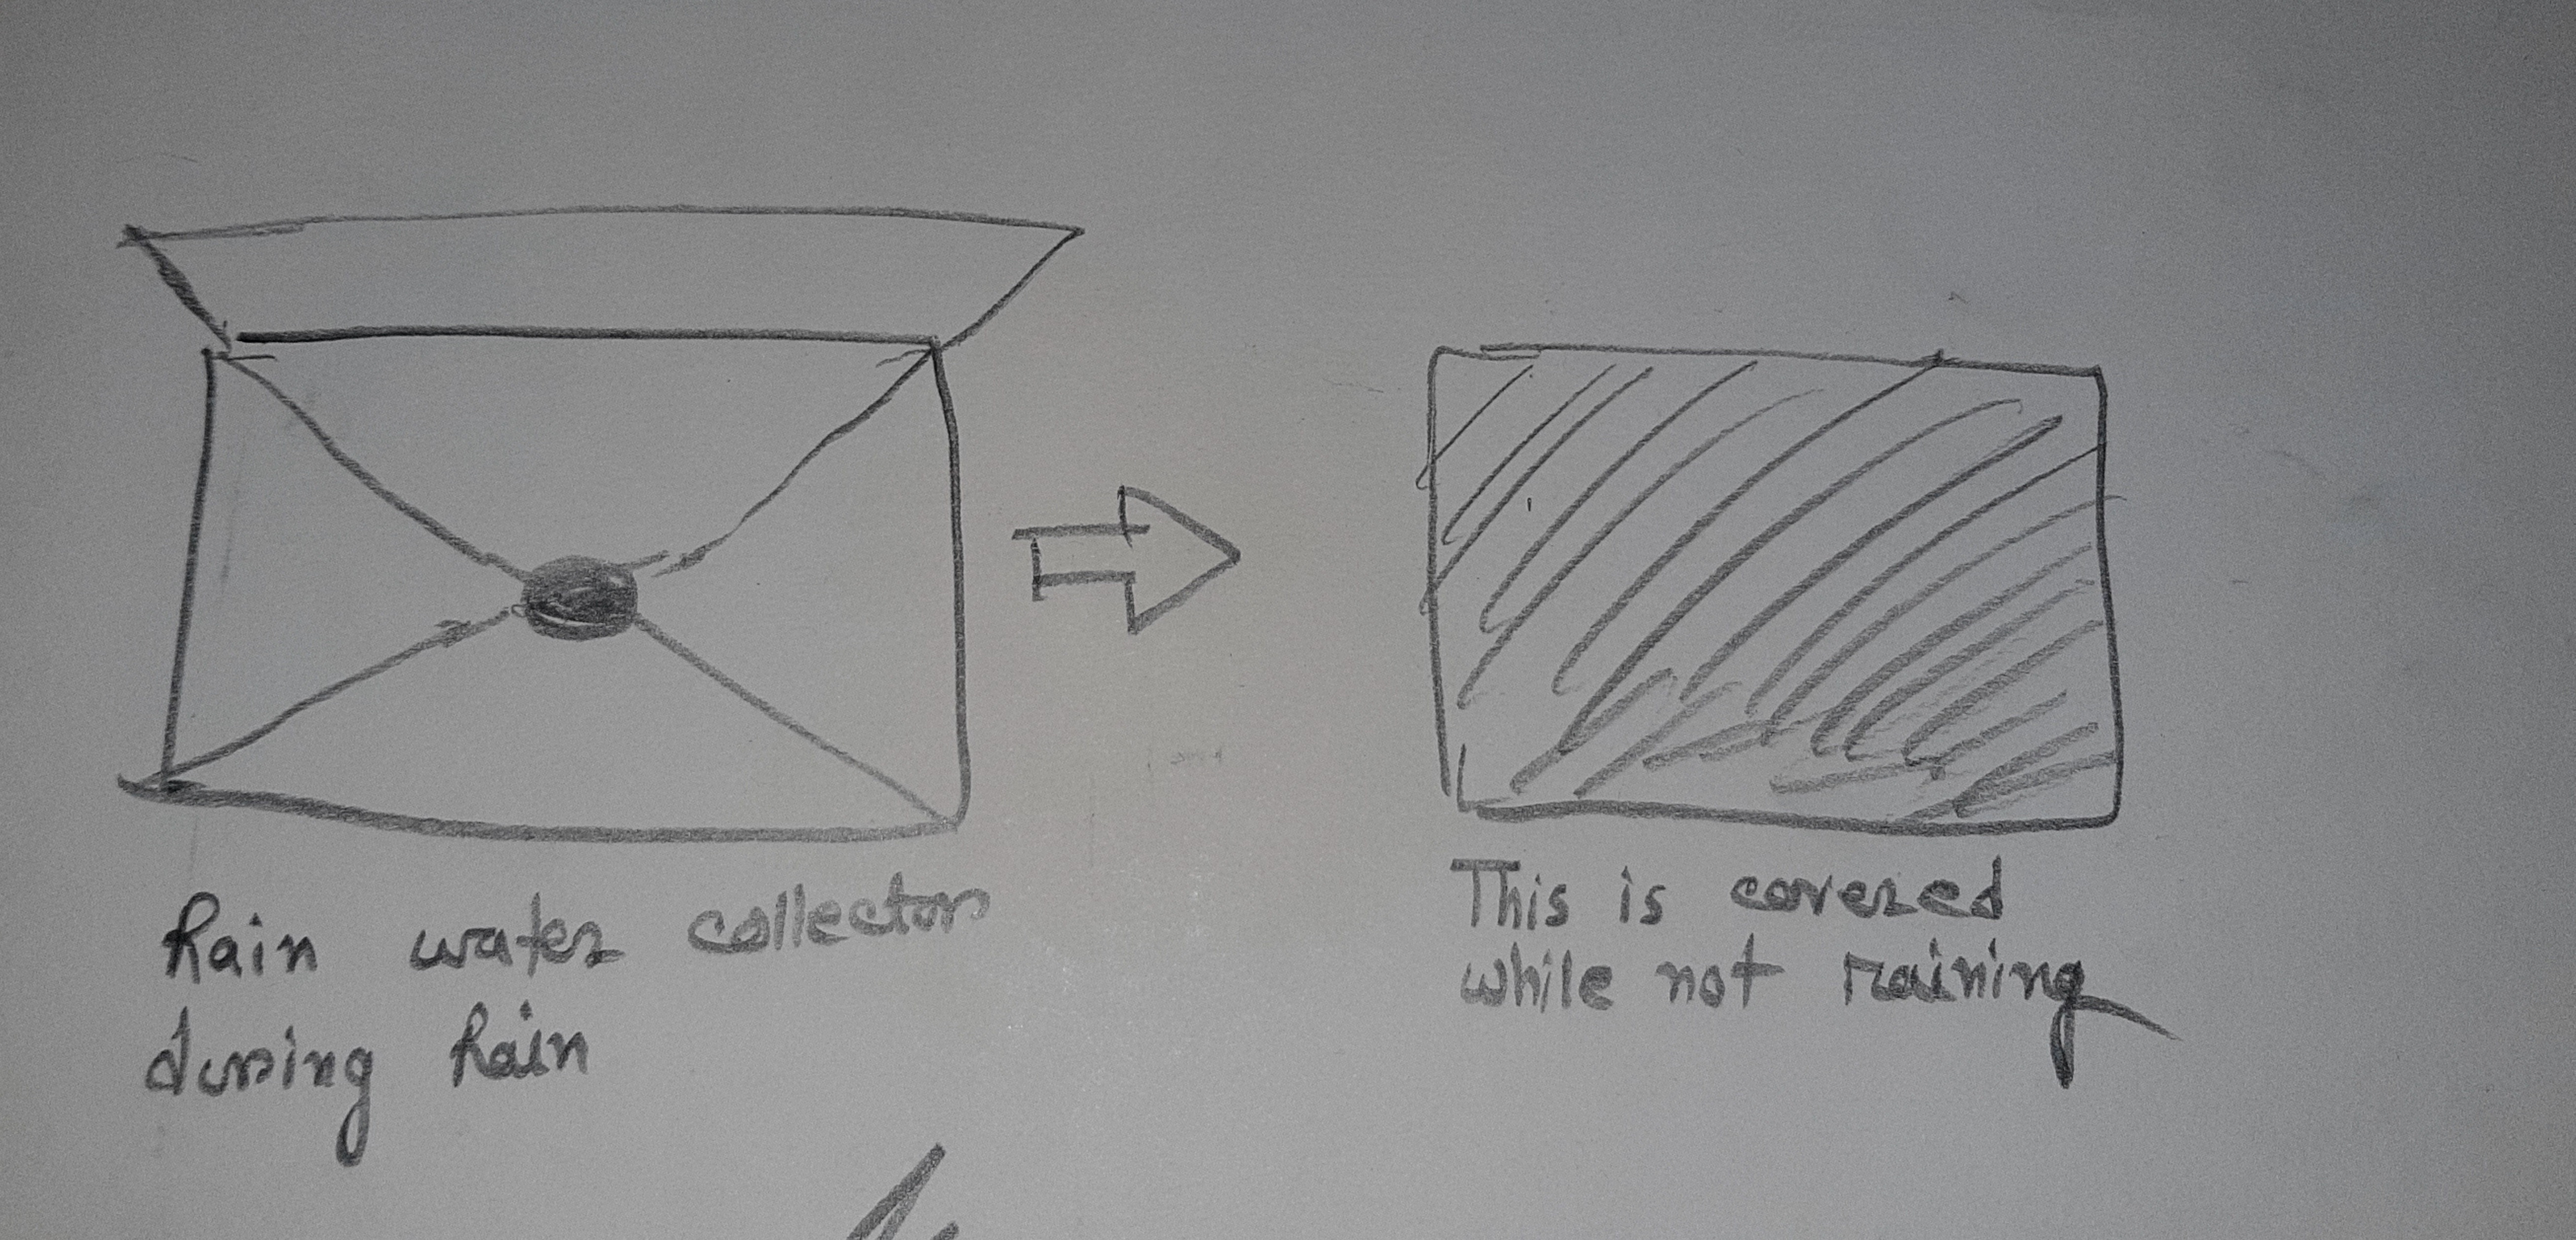 Rain water collector
during Rain
This is covered
while not raining